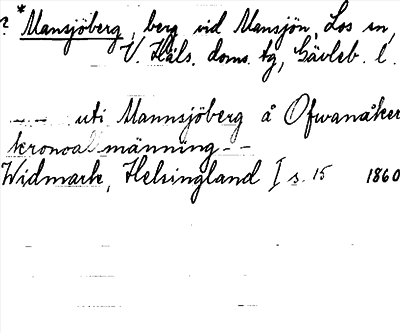 ? *Mansjöberg, berg vid Mansjön, Los sn,
V. Häls. doms. tg, Gävleb. l.
- - uti Mannsjöberg å Ofwanåker
kronoallmänning - -
Widmark, Helsingland I s. 15 1860